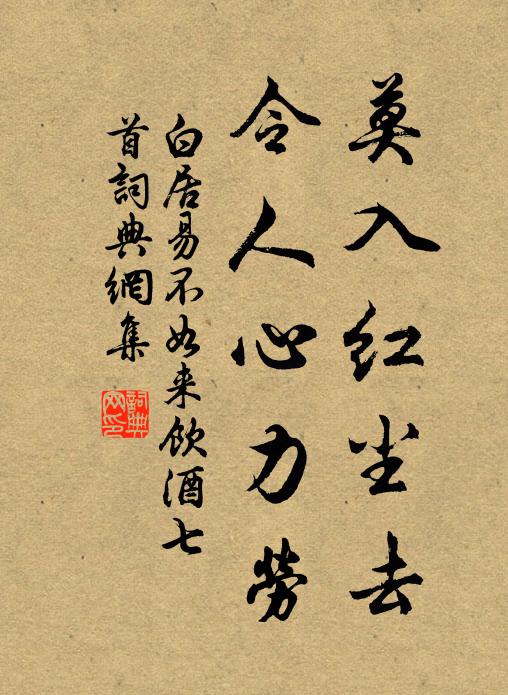 莫入红尘去
令人心力劳
白居易不如来饮酒七
首词典網集
詞典
网印